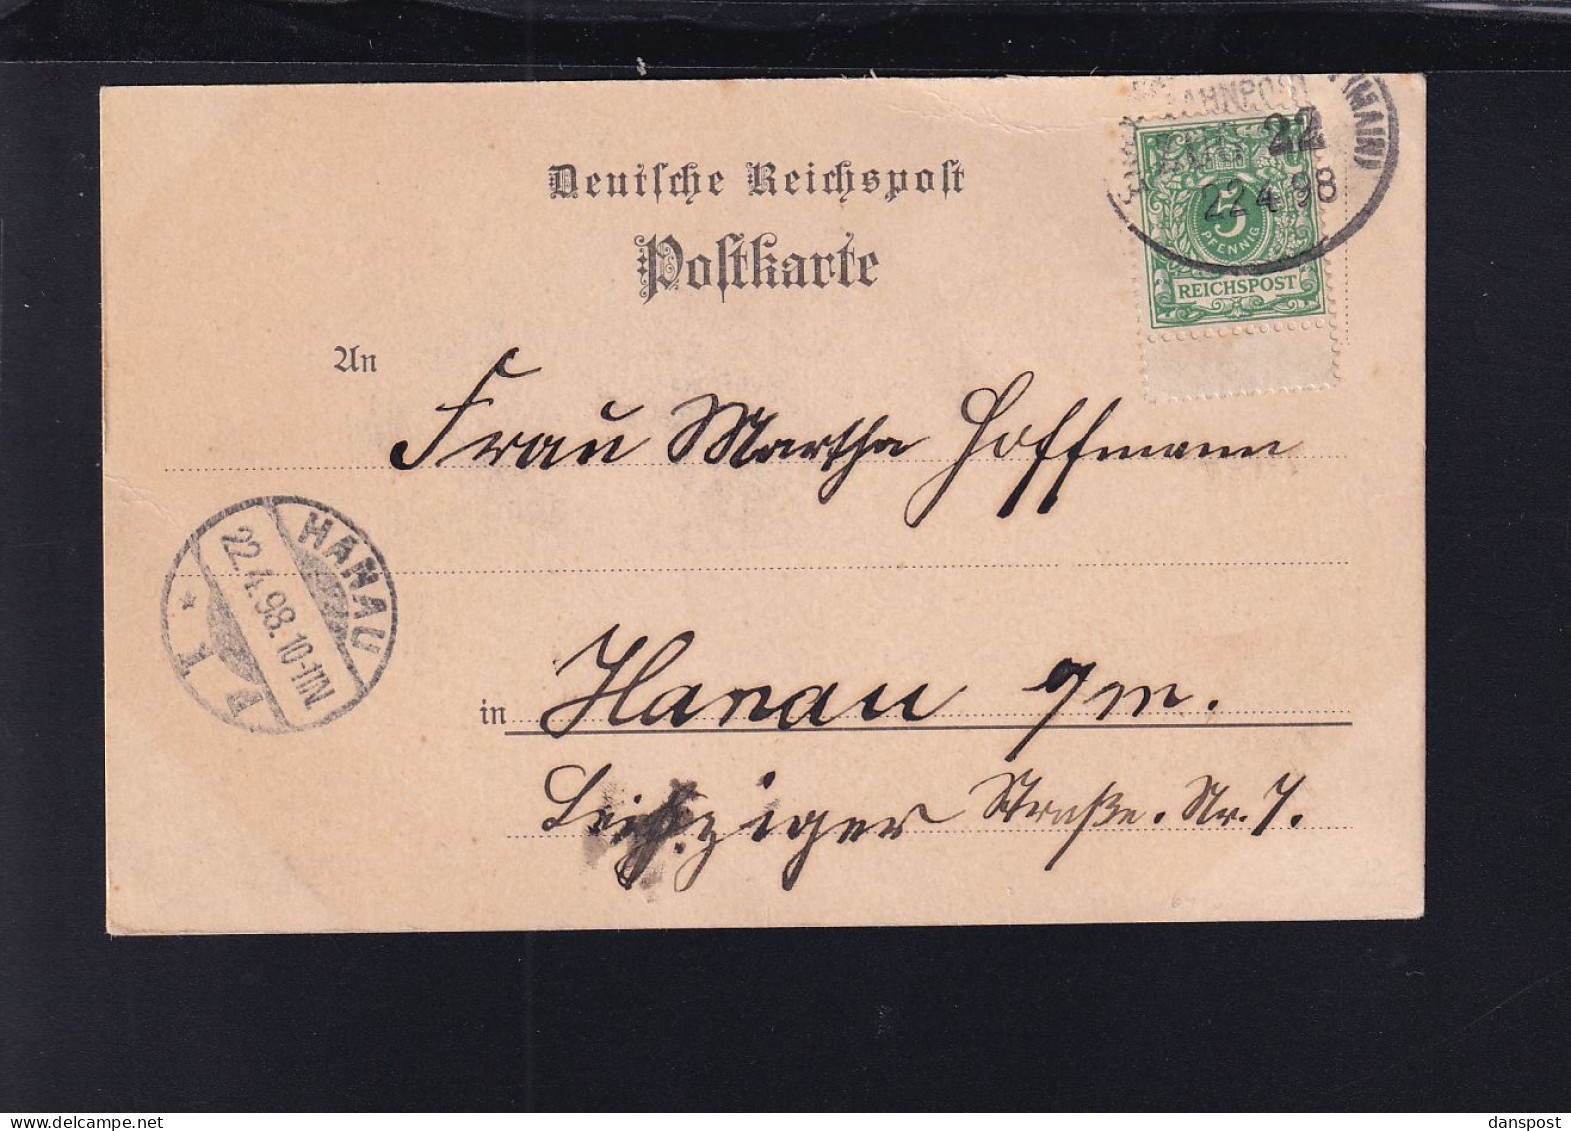 Deutsche Reichspost
Postkarte
BAHNPOST
(MAIN)
22
22 4 98
5
PFENNIG
REICHSPOST
An
Frau Martha Hoffmann
HANAU
22.4.98.10-11N
in Hanau a/m.
Leipziger Straße. Nr. 7.
danspost